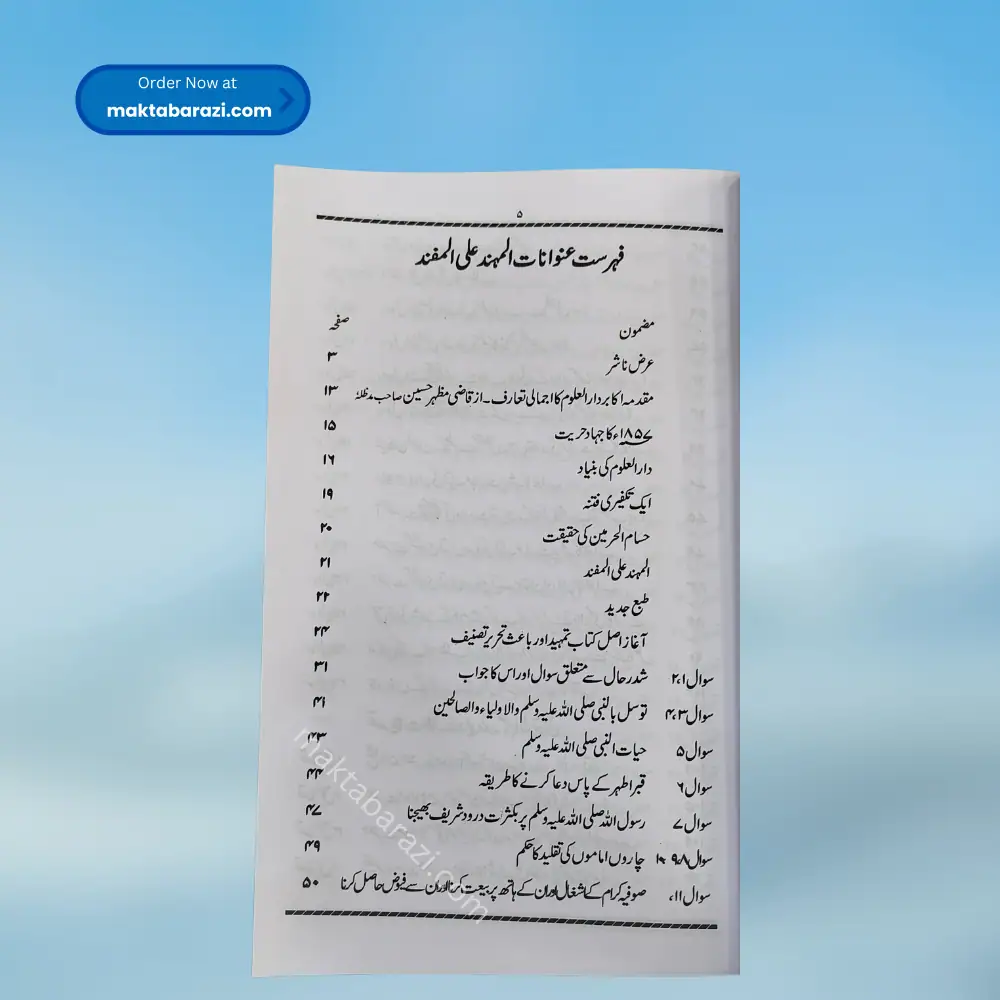 Order Now at
maktabarazi.com
۵
فہرست عنوانات المہند علی المفند
مضمون صفحہ
عرض ناشر ۳
مقدمہ اکابر دارالعلوم کا اجمالی تعارف۔ از قاضی مظہر حسین صاحب مدظلہٗ ۱۳
۱۸۵۷ء کا جہاد حریت ۱۵
دارالعلوم کی بنیاد ۱۶
ایک تکفیری فتنہ ۱۹
حسام الحرمین کی حقیقت ۲۰
المہند علی المفند ۲۱
طبع جدید ۲۲
آغاز اصل کتاب تمہید اور باعث تحریر تصنیف ۲۴
سوال ۲،۱ شد رحال سے متعلق سوال اور اس کا جواب ۳۱
سوال ۴،۳ توسل بالنبی صلی اللہ علیہ وسلم والاولیاء والصالحین ۴۱
سوال ۵ حیات النبی صلی اللہ علیہ وسلم ۴۳
سوال ۶ قبر اطہر کے پاس دعا کرنے کا طریقہ ۴۴
سوال ۷ رسول اللہ صلی اللہ علیہ وسلم پر بکثرت درود شریف بھیجنا ۴۷
سوال ۱۰،۹،۸ چاروں اماموں کی تقلید کا حکم ۴۹
سوال ۱۱، صوفیہ کرام کے اشغال اور ان کے ہاتھ پر بیعت کرنا اور ان سے فیوض حاصل کرنا ۵۰
maktabarazi.com